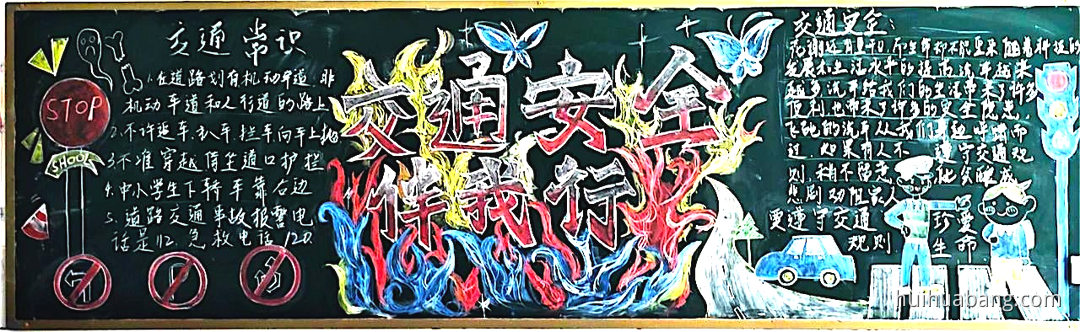 交通常识
STOP
SHOOL
1.在道路划有机动车道、非
机动车道和人行道的路上
2.不许追车,扒车,拦车,向车上抛
3.不准穿越停坐道口护拦
4.中小学生下轿车靠右边
5.道路交通事故报警电
话是112.急救电话120.
交通安全
伴我行
交通安全:
花谢还有重开日,而生命却不能重来.随着科技的
发展和生活水平的提高汽车越来
越多,汽车给我们的生活带来了许多
便利,也带来了许多的安全隐患,
飞驰的汽车从我们身边呼啸而
过,如果有人不遵守交通规
则,稍不留意
悲剧
要遵守交通
规则
珍
生命
huihuabang.com